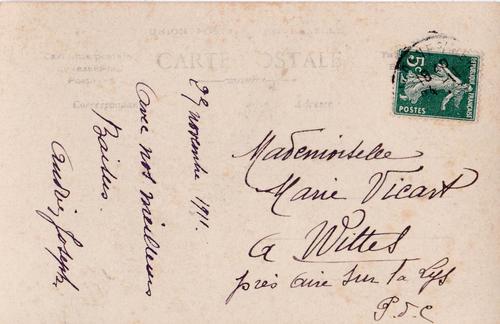 UNION POSTALE UNIVERSELLE
CARTE POSTALE
Correspondance
Adresse
29 novembre 1911.
Avec nos meilleurs
Baisers.
Joseph
5c
REPUBLIQUE FRANÇAISE
POSTES
Mademoiselle
Marie Vicart
A Wittes
près aire sur la Lys
P.d.C